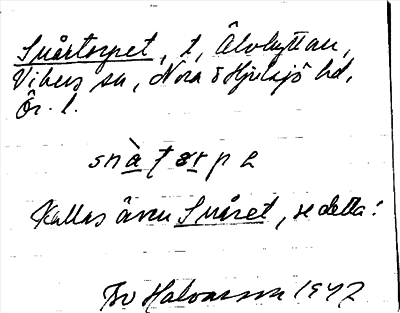 Snårtorpet, t, Älvhyttan,
Vikers sn, Nora o Hjulsjö hd,
Ör. l.
snàtərpe
Kallas även Snåret, se detta!
Bo Halvarsson 1942